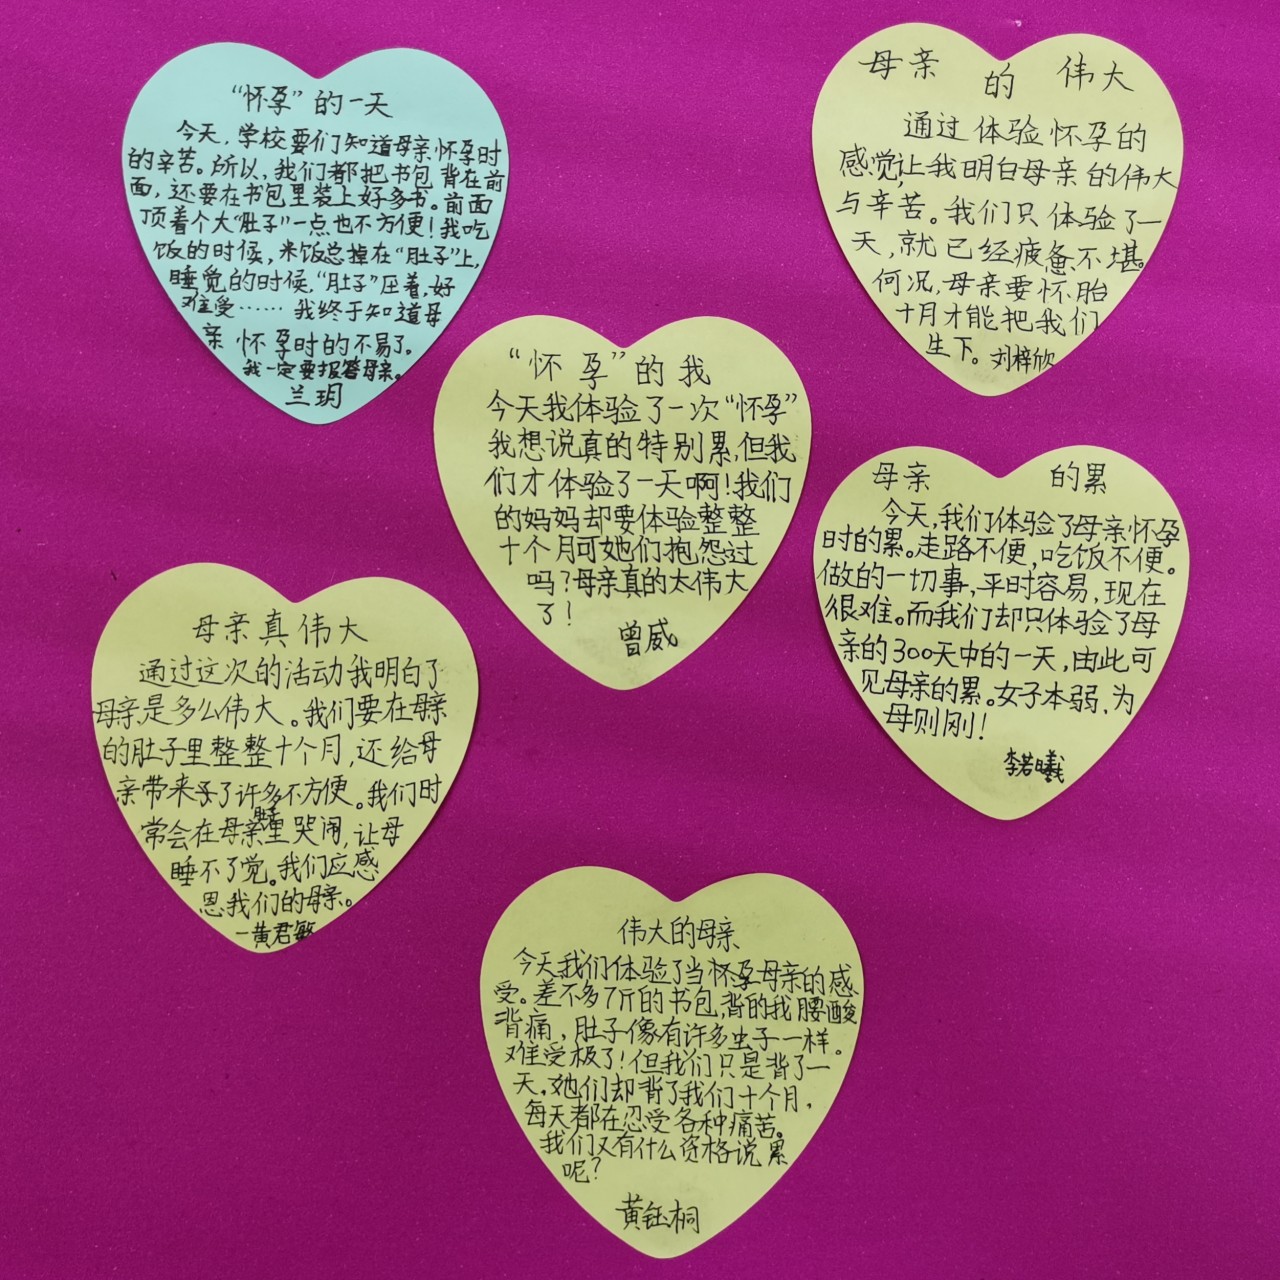 “怀孕”的一天
今天，学校要们知道母亲怀孕时
的辛苦。所以，我们都把书包背在前
面，还要在书包里装上好多书。前面
顶着个大“肚子”一点也不方便！我吃
饭的时候，米饭总掉在“肚子”上，
睡觉的时候，“肚子”压着，好
难受……我终于知道母
亲怀孕时的不易了。
我一定要报答母亲。
兰玥
母亲的伟大
通过体验怀孕的
感觉，让我明白母亲的伟大
与辛苦。我们只体验了一
天，就已经疲惫不堪。
何况，母亲要怀胎
十月才能把我们
生下。刘梓欣
“怀孕”的我
今天我体验了一次“怀孕”
我想说真的特别累，但我
们才体验了一天啊！我们
的妈妈却要体验整整
十个月可她们抱怨过
吗？母亲真的太伟大
了！
曾威
母亲的累
今天，我们体验了母亲怀孕
时的累。走路不便，吃饭不便。
做的一切事，平时容易，现在
很难。而我们却只体验了母
亲的300天中的一天，由此可
见母亲的累。女子本弱，为
母则刚！
李若曦
母亲真伟大
通过这次的活动我明白了
母亲是多么伟大。我们要在母亲
的肚子里整整十个月，还给母
亲带来了许多不方便。我们时
常会在母亲肚里哭闹，让母
睡不了觉。我们应感
恩我们的母亲。
—黄君敏
伟大的母亲
今天我们体验了当怀孕母亲的感
受。差不多7斤的书包，背的我腰酸
背痛，肚子像有许多虫子一样。
难受极了！但我们只是背了一
天，她们却背了我们十个月，
每天都在忍受各种痛苦。
我们又有什么资格说累
呢？
黄钰桐